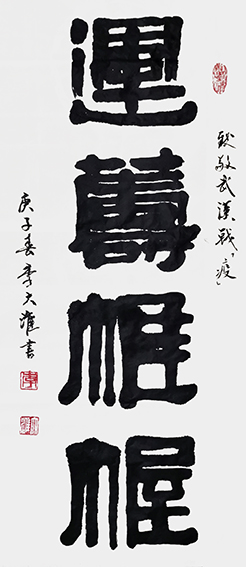 致敬武漢戰“疫”
運籌帷幄
庚子春李大書